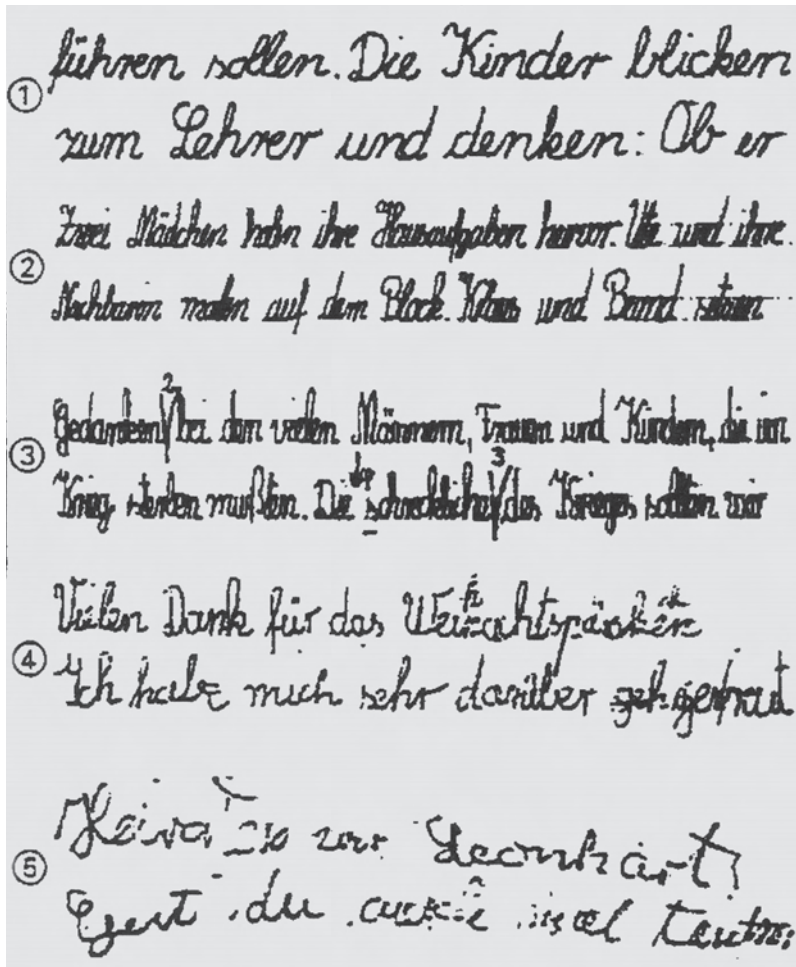 ① führen sollen. Die Kinder blicken
zum Lehrer und denken: Ob er
② Zwei Mädchen holen ihre Hausaufgaben hervor. Ute und ihre
Nachbarin malen auf dem Block. Klaus und Bernd setzen
③ Gedanken bei den vielen Männern, Frauen und Kindern, die im
Krieg sterben mußten. Die schrecklichen des Krieges sollten wir
④ Vielen Dank für das
Ich habe mich sehr darüber gefreut
⑤ Leonhart
du